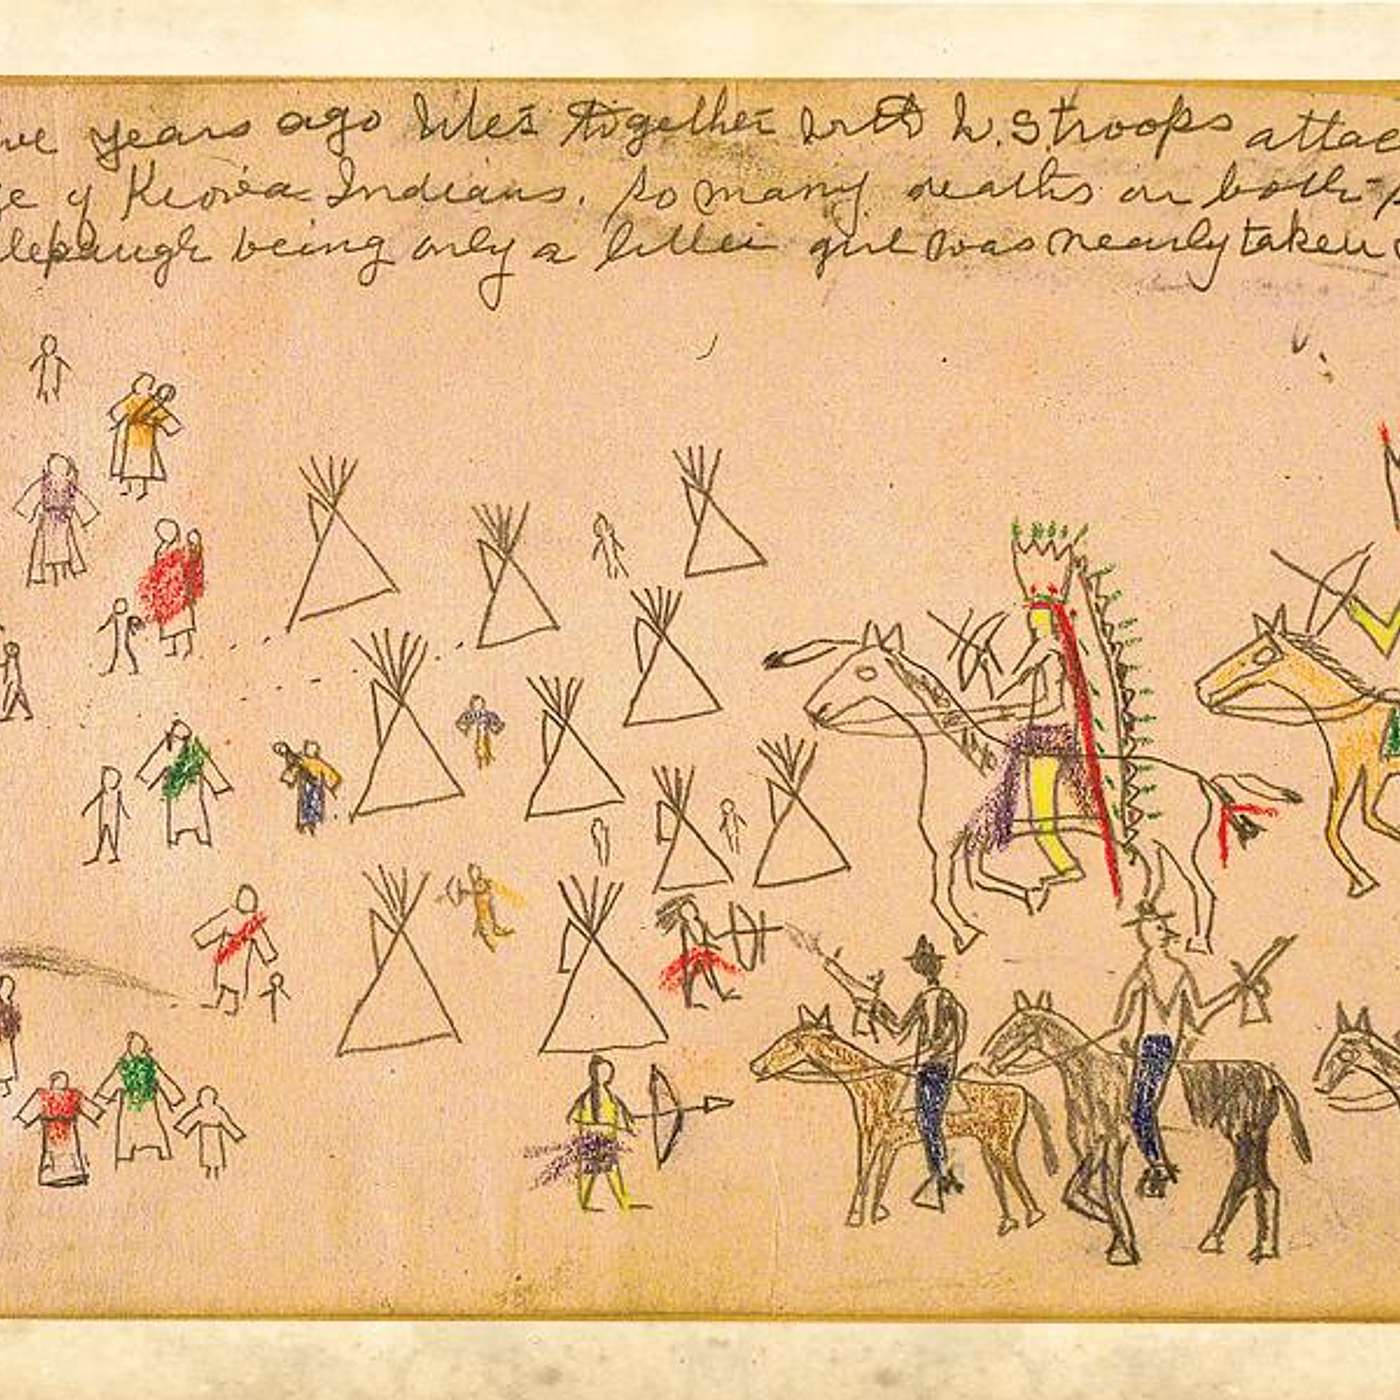 years ago Utes together with U.S troops attac
of Kiowa Indians. So many deaths on both
being only a little girl was nearly taken